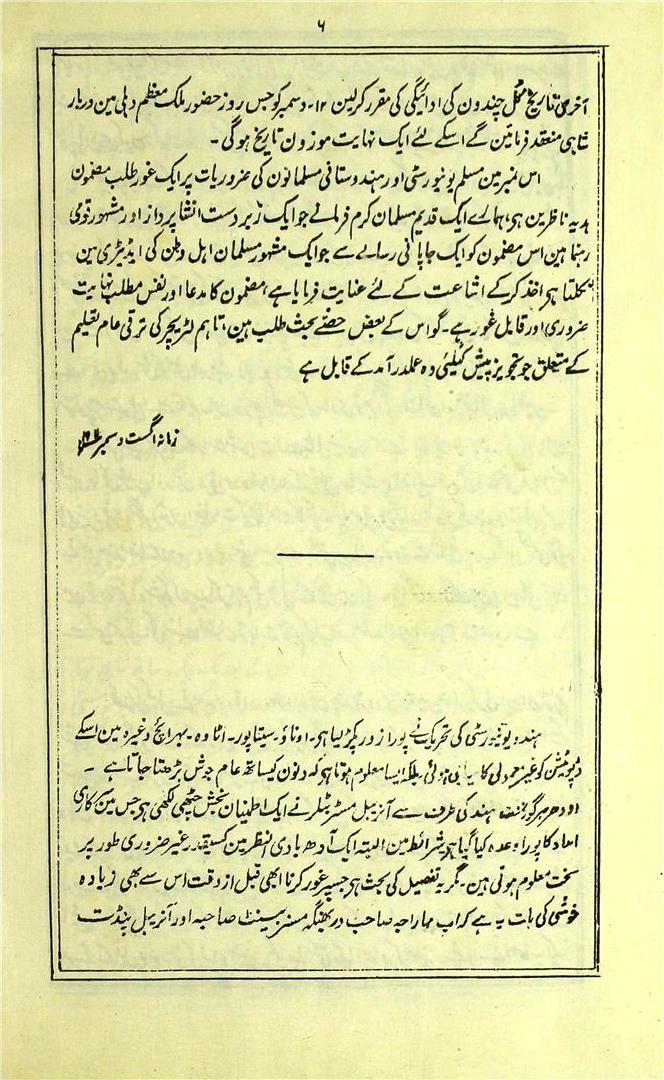 ۶
آخری تاریخ کل چندون کی ادائیگی کی مقرر کرلین ۱۲۔ دسمبر کو جس روز حضور ملک معظم دہلی مین دربار
شاہی منعقد فرمائین گے اسکے لئے ایک نہایت موزون تاریخ ہوگی۔
اس نمبر مین مسلم یونیورسٹی اور ہندوستانی مسلمانون کی ضروریات پر ایک غور طلب مضمون
ہدیہ ناظرین ہی، ہمارے ایک قدیم مسلمان کرم فرمانے جو ایک زبردست انشا پرداز اور مشہور قومی
رہنما ہین اس مضمون کو ایک جاپانی رسالے سے جو ایک مشہور مسلمان اہل وطن کی ایڈیٹری مین
نکلتا ہی اخذ کرکے اشاعت کے لئے عنایت فرمایا ہے، مضمون کا مدعا اور نفس مطلب نہایت
ضروری اور قابل غور ہے۔ گو اس کے بعض حصے بحث طلب ہین، تاہم لٹریچر کی ترقی عام تعلیم
کے متعلق جو تجویز پیش کیگئی وہ عملدرآمد کے قابل ہے
زمانہ اگست دسمبر
ہندو یونیورسٹی کی تحریک نے پورا زور پکڑ لیا ہی۔ اوناؤ۔ سیتاپور۔ اٹاوہ۔ بہرائچ وغیرہ مین اسکے
ڈپوٹیشن کو غیر معمولی کامیابی ہوئی بلکہ ایسا معلوم ہوتا ہی کہ دنون کیساتھ عام جوش بڑھتا جاتا ہے۔
اودھر گورنمنٹ ہند کی طرف سے آنریبل مسٹر بٹلر نے ایک اطمینان بخش چٹھی لکھی ہی جس مین سرکاری
امداد کا پورا وعدہ کیا گیا ہی شرائط مین البتہ ایک آدھ بادی النظر مین کسیقدر غیر ضروری طور پر
سخت معلوم ہوتی ہین۔ مگر یہ تفصیل کی بحث ہی جسپر غور کرنا ابھی قبل از وقت اس سے بھی زیادہ
خوشی کی بات یہ ہے کہ اب مہاراجہ صاحب دربھنگہ مسز بیسنٹ صاحبہ اور آنریبل پنڈت